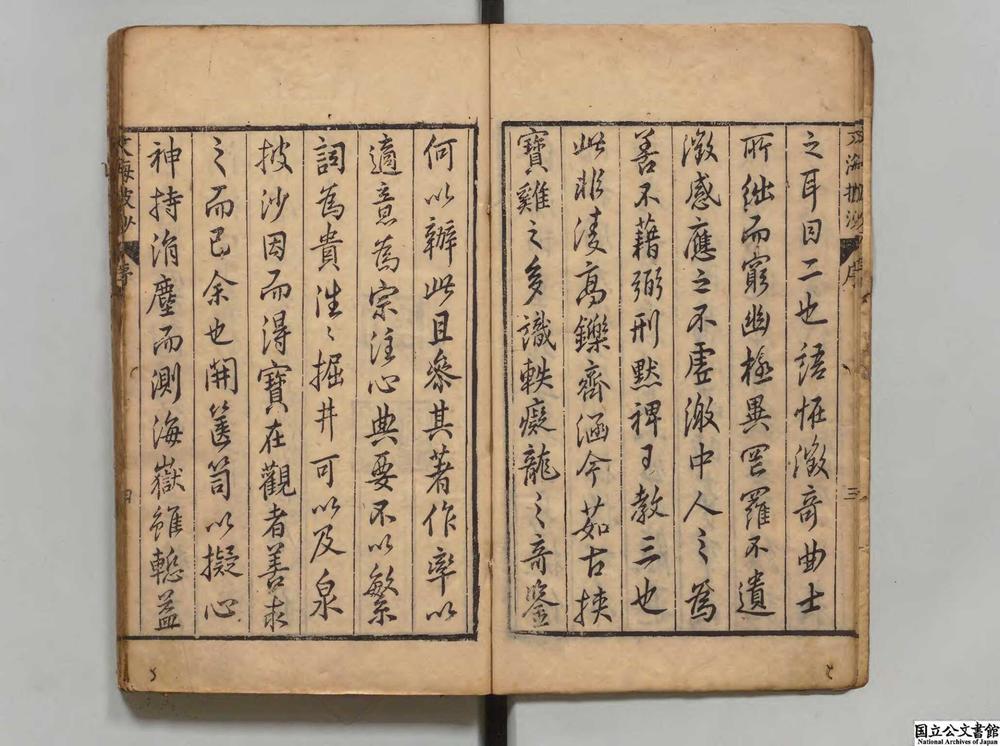 文海披沙 序 三
之耳目二也語怪徵奇曲士
所絀而窮幽極異罟羅不遺
徵感應之不虛激中人之為
善不藉弼刑默裨王教三也
此非淩高鑠齊涵今茹古挾
寶雞之多識軼癡龍之奇鑒
何以辦此且參其著作率以
適意為宗注心典要不以繁
詞為貴涉〻掘井可以及泉
披沙因而得寶在觀者善求
之而已余也開篋笥以擬心
神持涓塵而測海嶽雖慙益
文海披沙 序 四
国立公文書館
National Archives of Japan